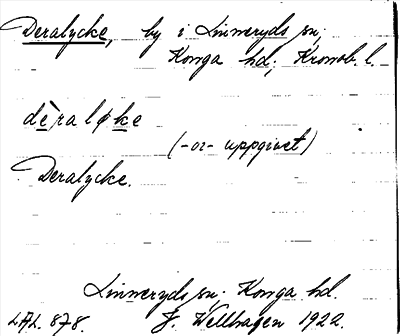 Deralycke, by i Linneryds sn;
Konga hd; Kronob. l.
dèraløke
(-or- uppgivet)
Deralycke.
Linneryds sn; Konga hd.
LAL 878. J. Wellhagen 1922.